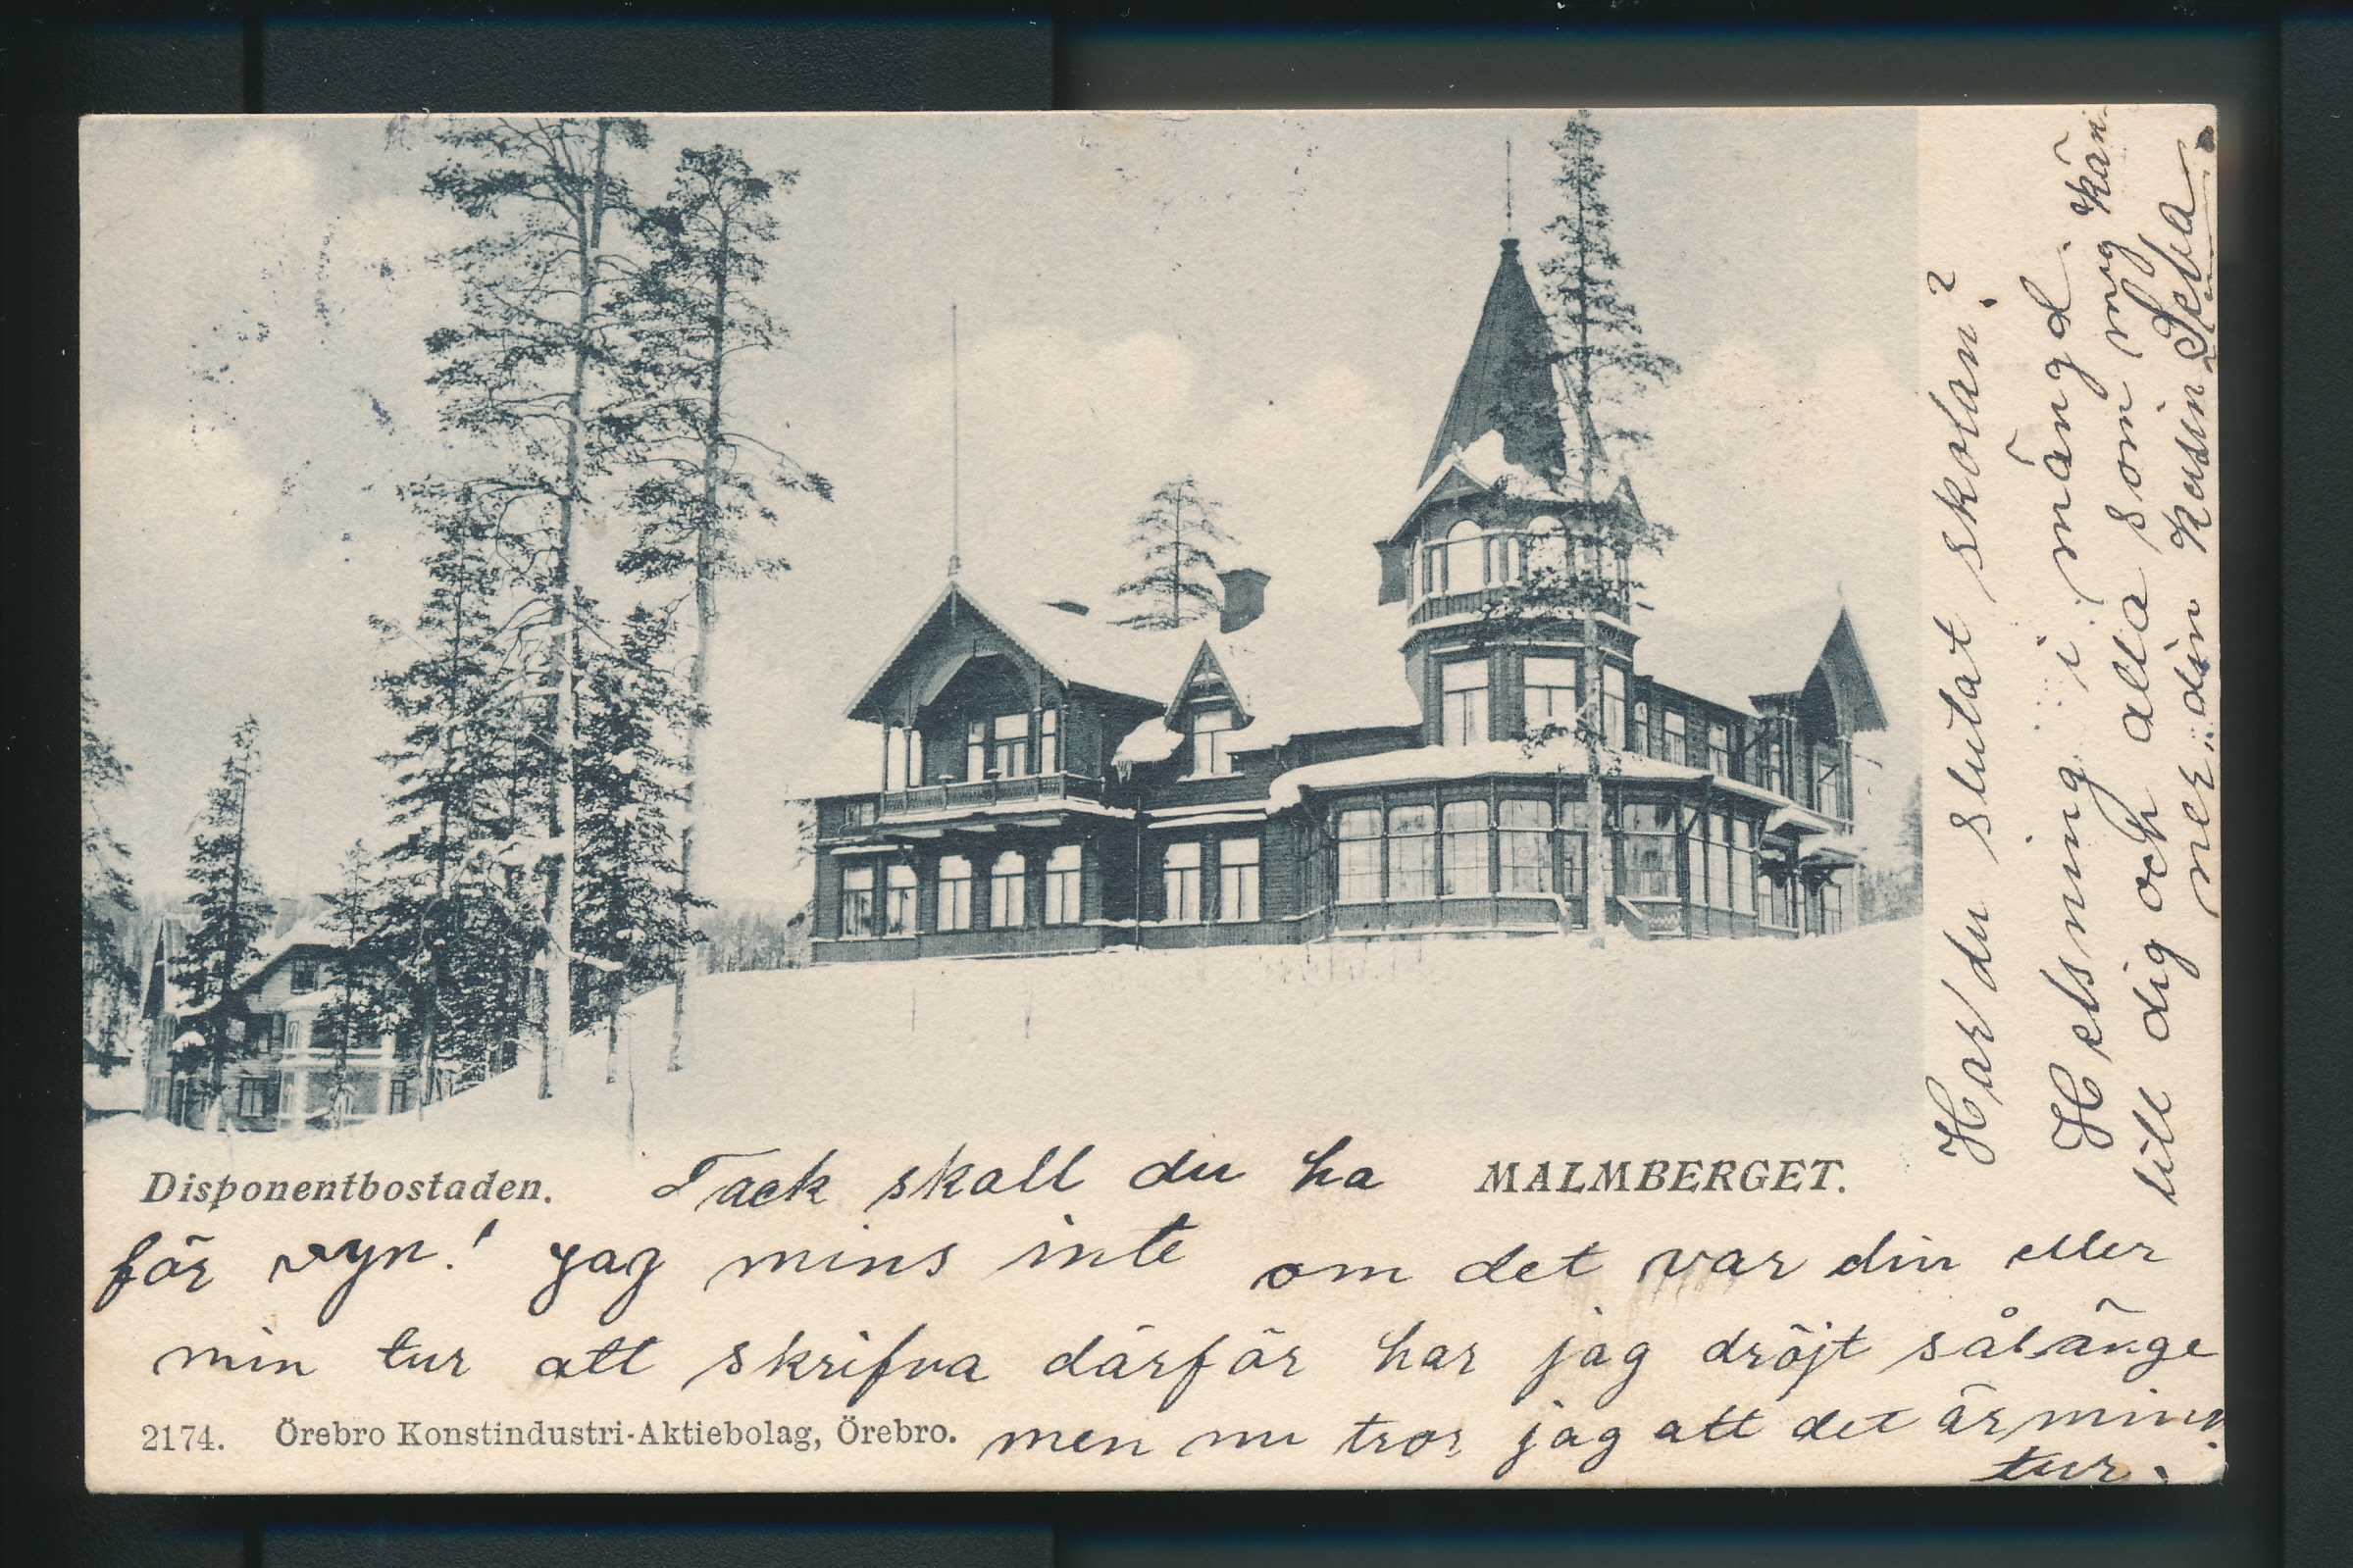 Disponentbostaden. Tack skall du ha MALMBERGET.
för vyn! Jag mins inte om det var din eller
min tur att skrifva därför har jag dröjt sålänge
2174. Örebro Konstindustri-Aktiebolag, Örebro. men nu tror jag att det är min
tur.
Har du slutat skolan?
Helsning i mängd.
till dig och alla som mig kän
ner din kusin